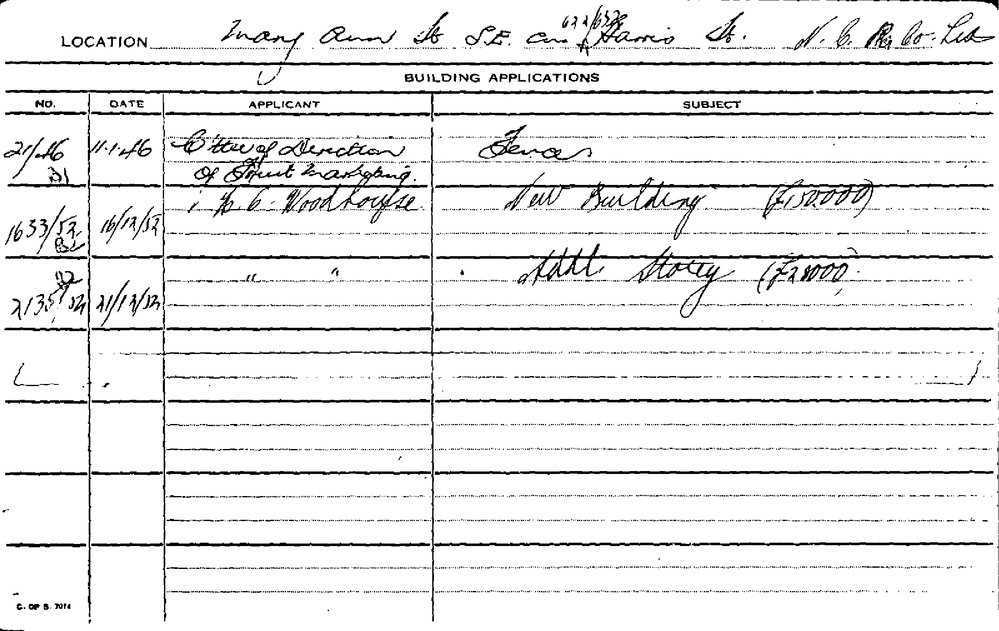 LOCATION Mary Ann St S.E. cnr 622/632 Harris St. N. C. Co. Ltd
BUILDING APPLICATIONS
NO. DATE APPLICANT SUBJECT
21/46 11.1.46 C'ttee of Direction Fences
of Fruit Marketing.
H. C. Woodhouse New Building (£150,000)
1633/52 16/12/52
" " Addl Storey (£28000)
2135/52 21/12/52
C. OF S. 7014